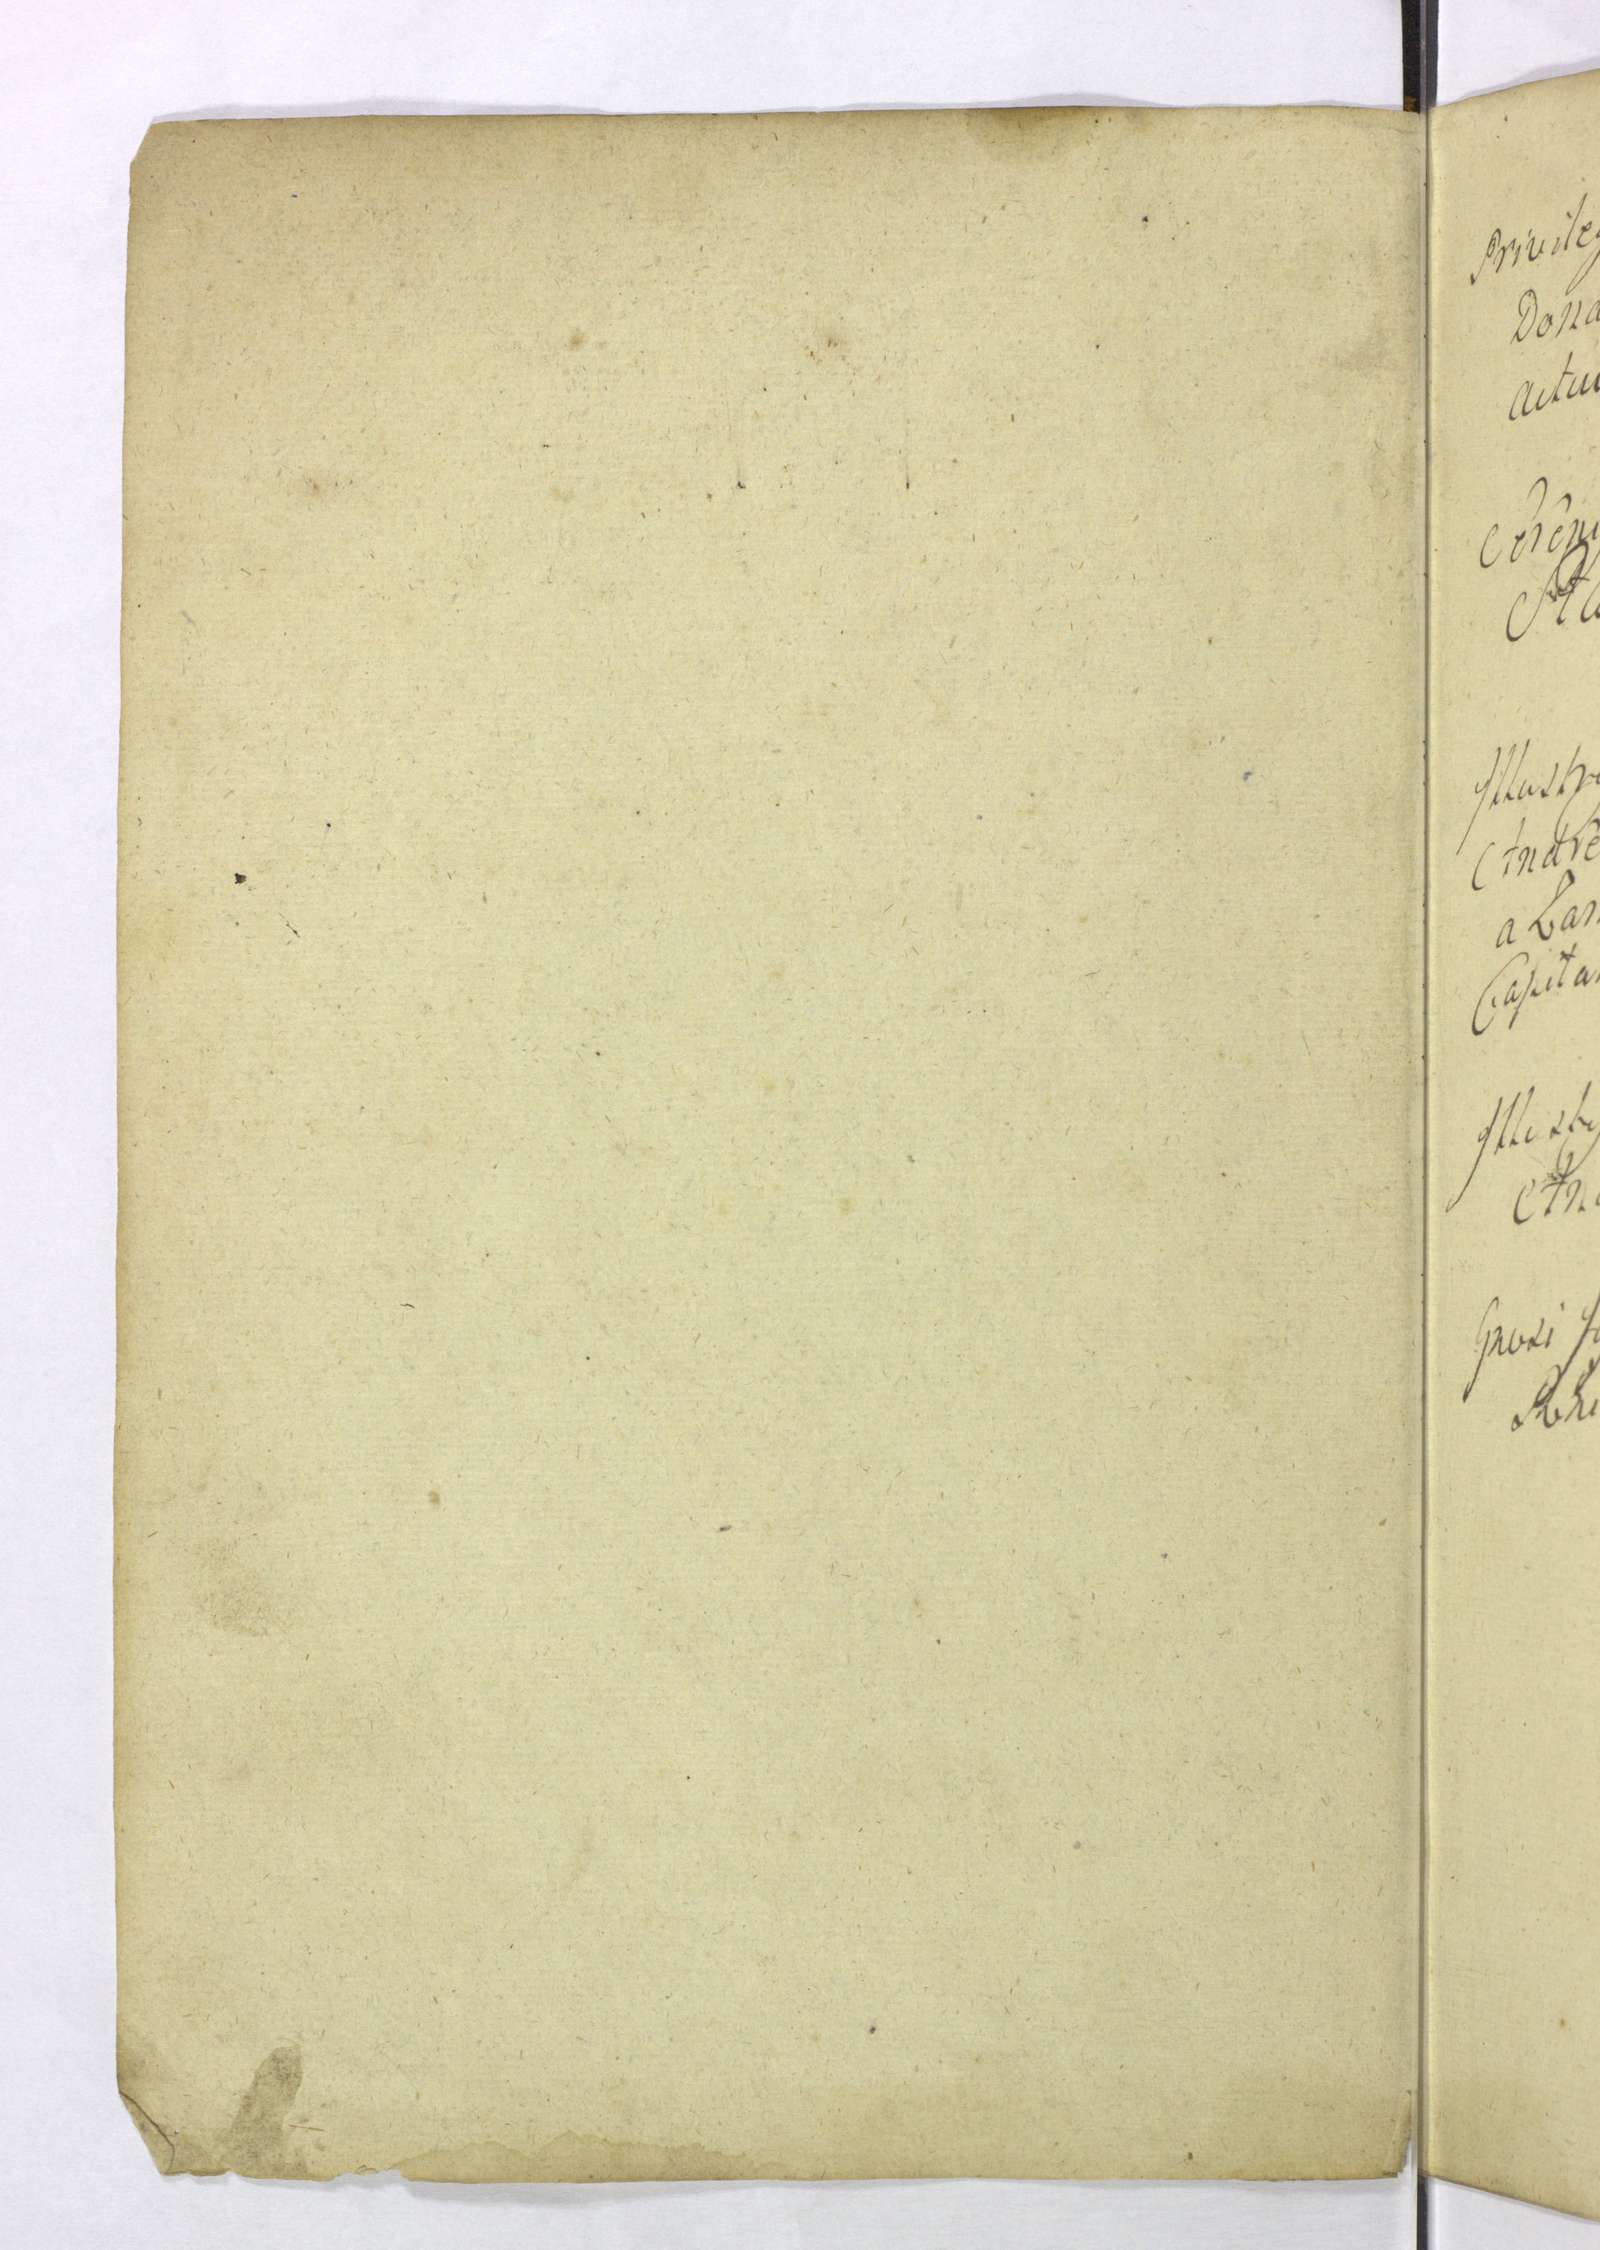 Privileg
Dona
actu
Cerem
Sta
Illustr
Andre
a Lan
Capita
Illustr
And
Gnosi